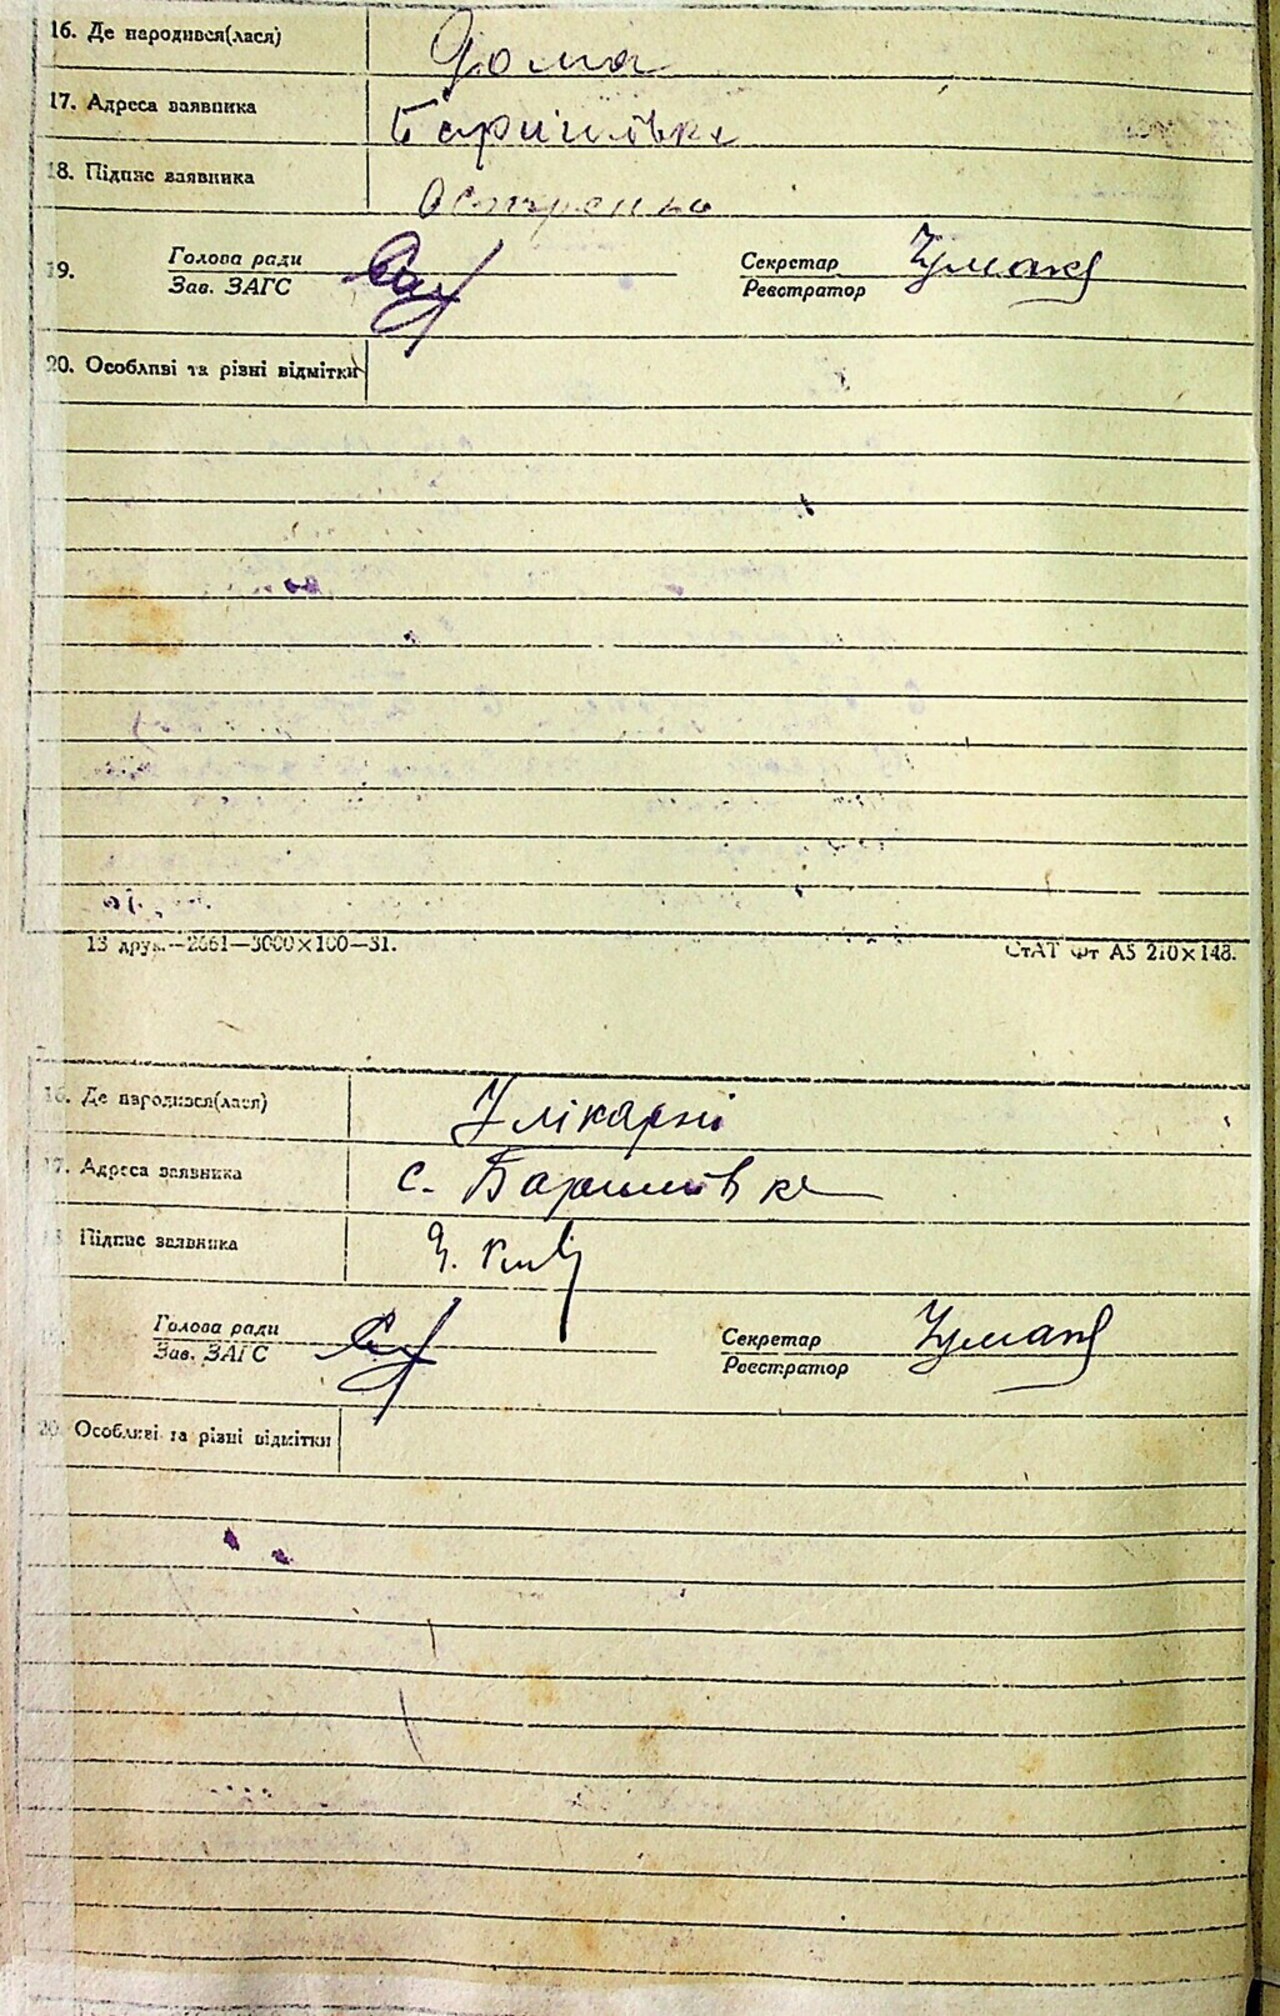 16. Де народився(лася) Дома
17. Адреса заявника Баришівка
18. Підпис заявника
19. Голова ради
Зав. ЗАГС
Секретар Чумак
Реєстратор
20. Особливі та різні відмітки
13 друк.—2661—3000×100—31. СтАТ Фт А5 210×148.
16. Де народився(лася) У лікарні
17. Адреса заявника с. Баришівка
Підпис заявника
Голова ради
Зав. ЗАГС
Секретар Чумак
Реєстратор
20. Особливі та різні відмітки